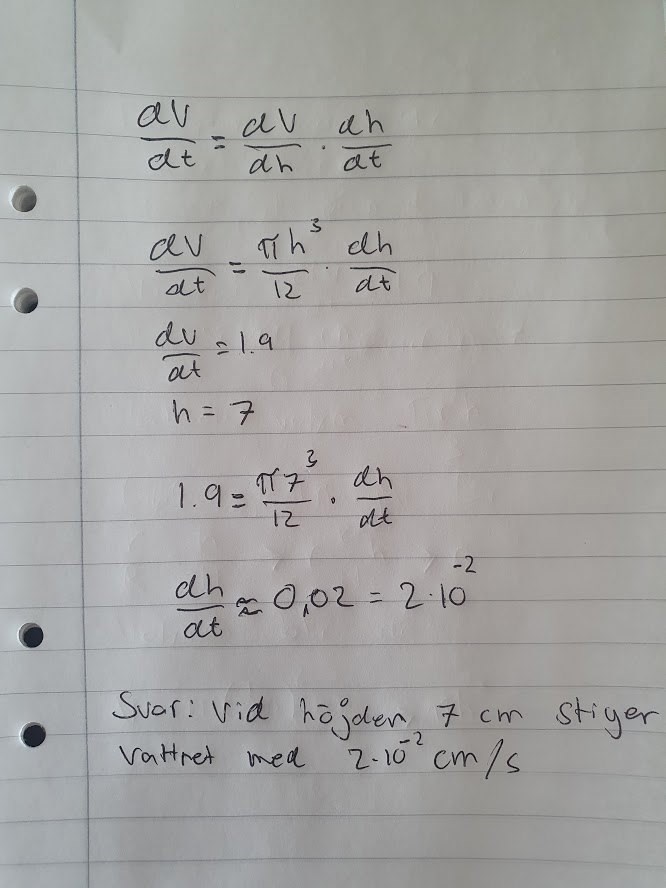 dV/dt = dV/dh · dh/dt
dV/dt = πh³/12 · dh/dt
dv/dt = 1.9
h = 7
1.9 = π7³/12 · dh/dt
dh/dt ≈ 0,02 = 2·10⁻²
Svar: Vid höjden 7 cm stiger
vattnet med 2·10⁻² cm/s